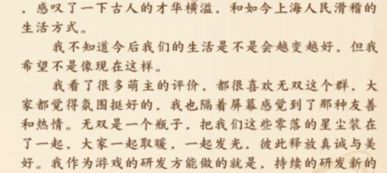 ，感叹了一下古人的才华横溢，和如今上海人民滑稽的
生活方式。
我不知道今后我们的生活是不是会越变越好，但我
希望不是像现在这样。
我看了很多萌主的评价，都很喜欢无双这个群，大
家都觉得氛围挺好的，我也隔着屏幕感觉到了那种友善
和热情。无双是一个瓶子，把我们这些零落的星尘装在
了一起，大家一起取暖，一起发光，彼此释放真诚与美
好。我作为游戏的研发方能做的就是，持续的研发新的